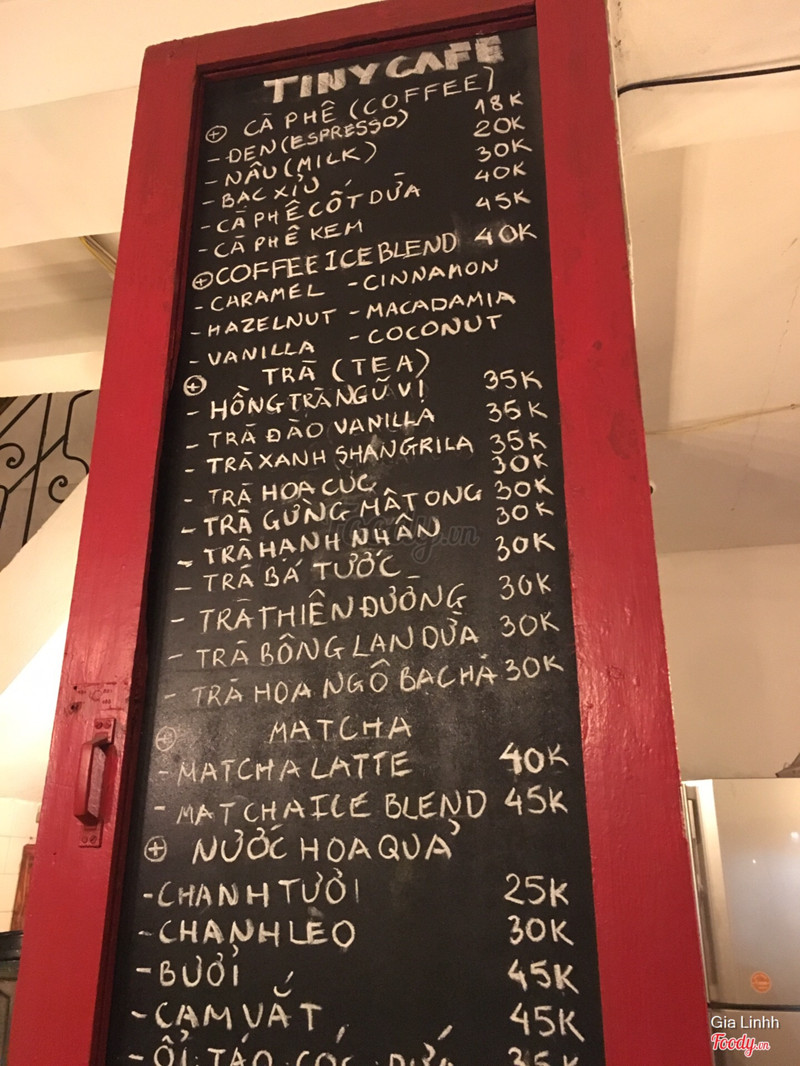 TINY CAFE
+ CÀ PHÊ (COFFEE)
- ĐEN (ESPRESSO) 18K
- NÂU (MILK) 20K
- BẠC XỈU 30K
- CÀ PHÊ CỐT DỪA 40K
- CÀ PHÊ KEM 45K
+ COFFEE ICE BLEND 40K
- CARAMEL - CINNAMON
- HAZELNUT - MACADAMIA
- VANILLA - COCONUT
+ TRÀ (TEA)
- HỒNG TRÀ NGŨ VỊ 35K
- TRÀ ĐÀO VANILLA 35K
- TRÀ XANH SHANGRILA 35K
- TRÀ HOA CÚC 30K
- TRÀ GỪNG MẬT ONG 30K
- TRÀ HẠNH NHÂN 30K
- TRÀ BÁ TƯỚC 30K
- TRÀ THIÊN ĐƯỜNG 30K
- TRÀ BÔNG LAN DỪA 30K
- TRÀ HOA NGÔ BẠC HÀ 30K
+ MATCHA
- MATCHA LATTE 40K
- MATCHA ICE BLEND 45K
+ NƯỚC HOA QUẢ
- CHANH TƯƠI 25K
- CHANH LEO 30K
- BƯỞI 45K
- CAM VẮT 45K
- ỔI, TÁO, CÓC, DỨA 35K
Foody.vn
Gia Linhh
Foody.vn